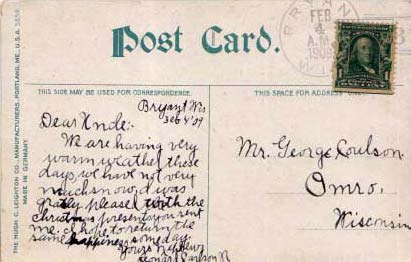 THE HUGH C. LEIGHTON CO., MANUFACTURERS, PORTLAND, ME., U.S.A.
MADE IN GERMANY.
Post Card.
BRYANT
FEB
4
A.M.
1909
WIS
THIS SIDE MAY BE USED FOR CORRESPONDENCE.
THIS SPACE FOR ADDRESS
Bryant Wis
Feb 4 '09
Dear Uncle:-
We are having very
warm weather these
days, we have not very
much snow. I was
greatly pleased with the
christmas present you sent
me. I hope to return the
same happiness some day.
Yours Nephew
Mr. George Coulson.
Omro,
Wisconsin